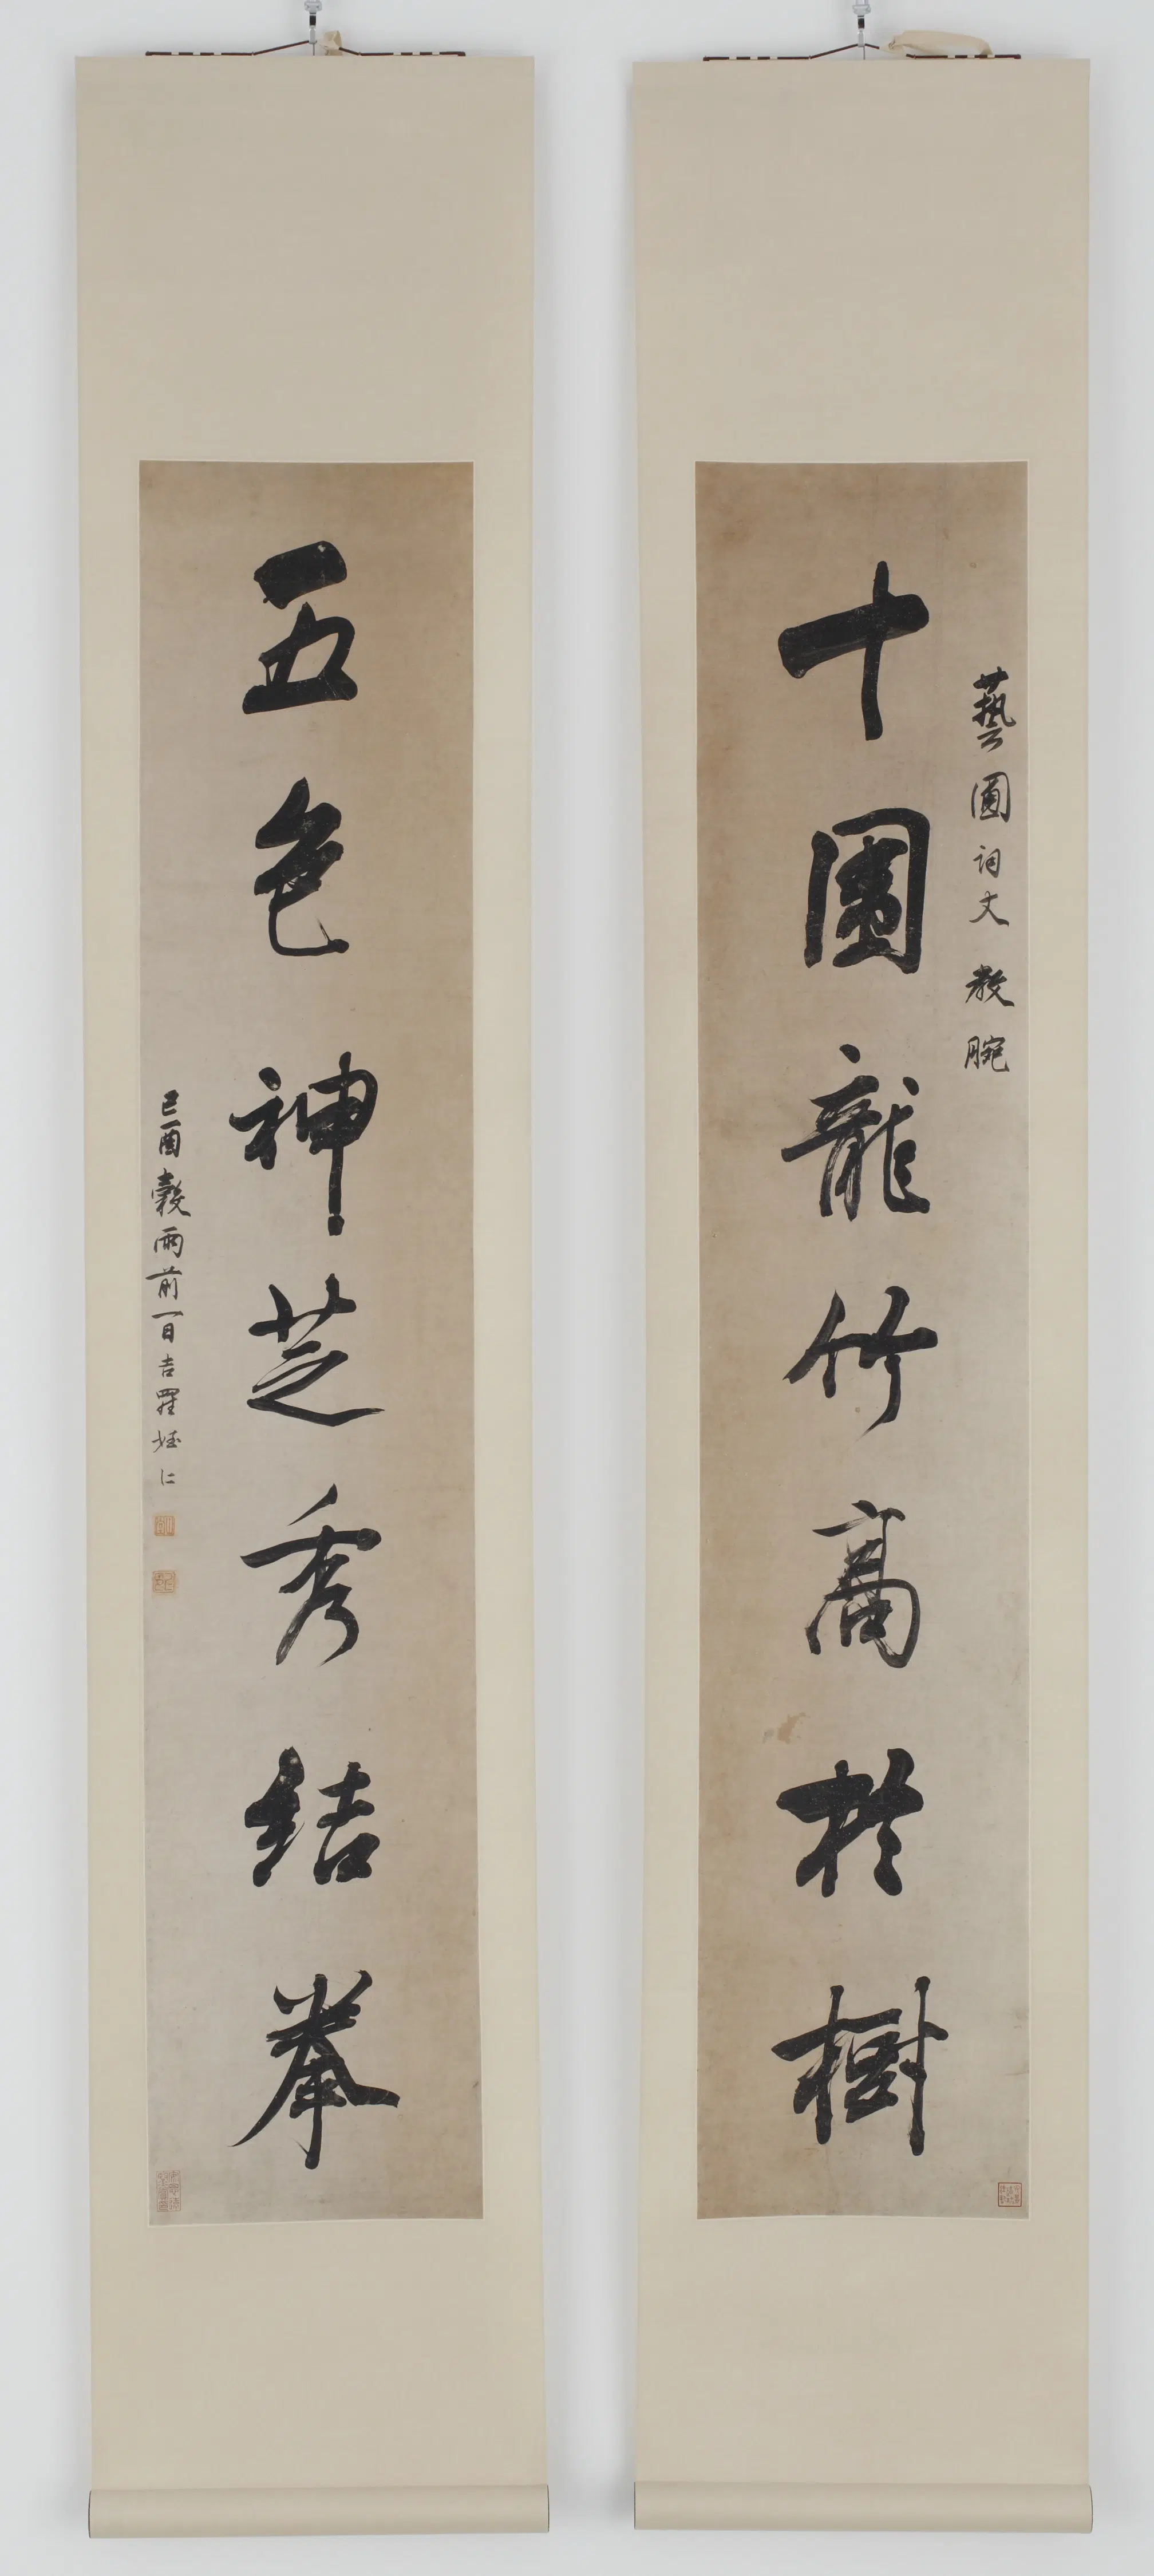 藝圃詞丈教腕
十圍龍竹高於樹
五色神芝秀結拳
己酉穀雨前一日吉羅姪仁